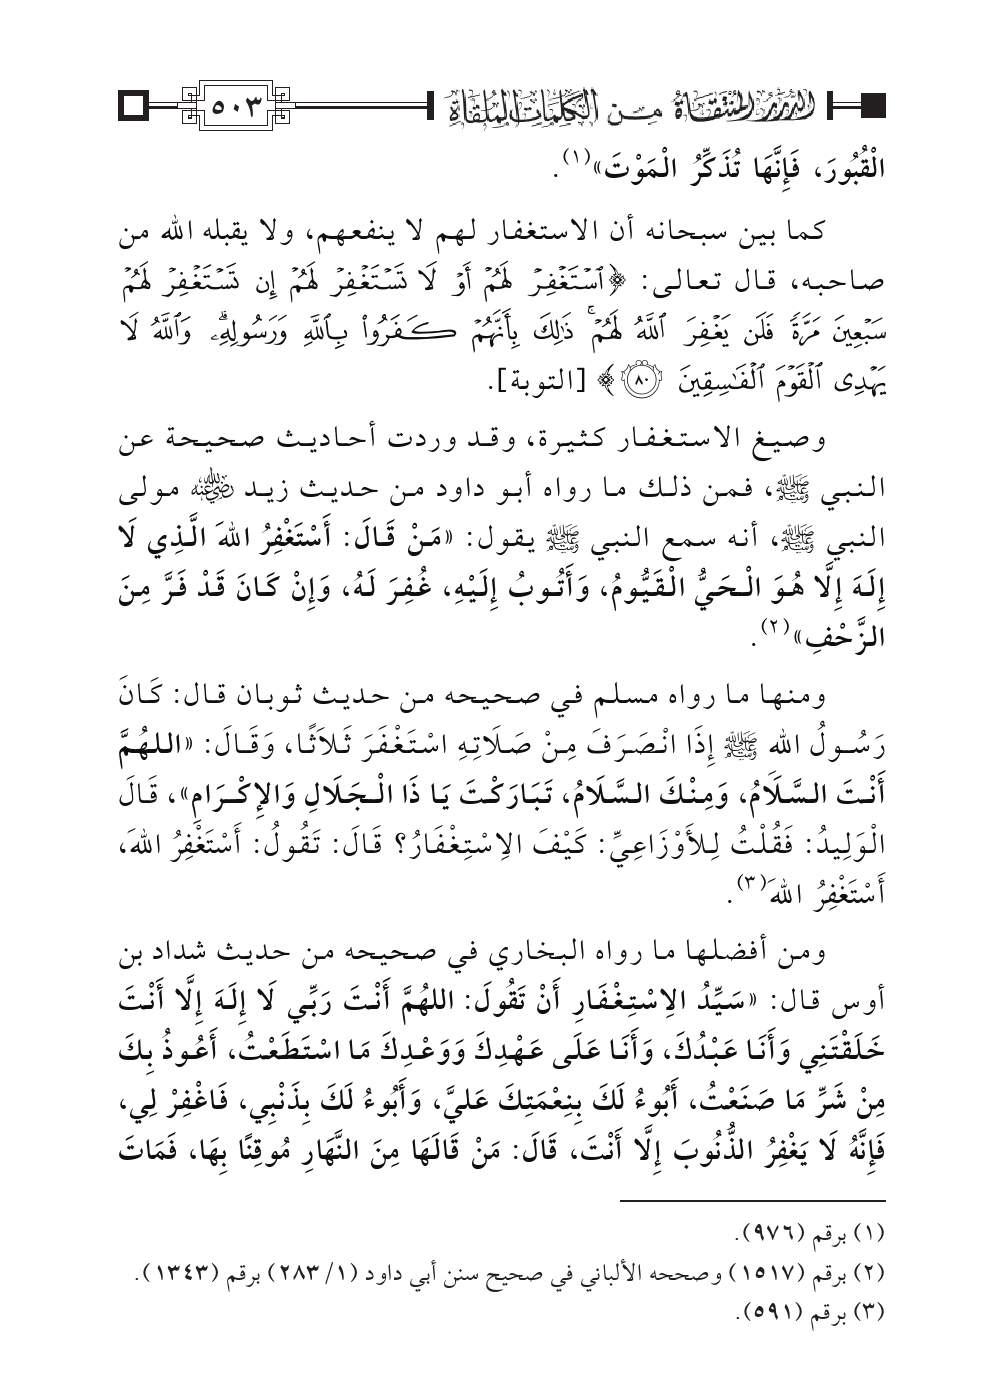 الدرر المنتقاة من الكلمات الملقاة ٥٠٣
الْقُبُورَ، فَإِنَّهَا تُذَكِّرُ الْمَوْتَ»(١).
كما بين سبحانه أن الاستغفار لهم لا ينفعهم، ولا يقبله الله من
صاحبه، قال تعالى: ﴿ٱسۡتَغۡفِرۡ لَهُمۡ أَوۡ لَا تَسۡتَغۡفِرۡ لَهُمۡ إِن تَسۡتَغۡفِرۡ لَهُمۡ
سَبۡعِينَ مَرَّةٗ فَلَن يَغۡفِرَ ٱللَّهُ لَهُمۡۚ ذَٰلِكَ بِأَنَّهُمۡ كَفَرُواْ بِٱللَّهِ وَرَسُولِهِۦۗ وَٱللَّهُ لَا
يَهۡدِي ٱلۡقَوۡمَ ٱلۡفَٰسِقِينَ ٨٠﴾ [التوبة].
وصيغ الاستغفار كثيرة، وقد وردت أحاديث صحيحة عن
النبي ﷺ، فمن ذلك ما رواه أبو داود من حديث زيد رضي الله عنه مولى
النبي ﷺ، أنه سمع النبي ﷺ يقول: «مَنْ قَالَ: أَسْتَغْفِرُ اللهَ الَّذِي لَا
إِلَهَ إِلَّا هُوَ الْحَيُّ الْقَيُّومُ، وَأَتُوبُ إِلَيْهِ، غُفِرَ لَهُ، وَإِنْ كَانَ قَدْ فَرَّ مِنَ
الزَّحْفِ»(٢).
ومنها ما رواه مسلم في صحيحه من حديث ثوبان قال: كَانَ
رَسُولُ اللهِ ﷺ إِذَا انْصَرَفَ مِنْ صَلَاتِهِ اسْتَغْفَرَ ثَلَاثًا، وَقَالَ: «اللهُمَّ
أَنْتَ السَّلَامُ، وَمِنْكَ السَّلَامُ، تَبَارَكْتَ يَا ذَا الْجَلَالِ وَالإِكْرَامِ»، قَالَ
الْوَلِيدُ: فَقُلْتُ لِلأَوْزَاعِيِّ: كَيْفَ الِاسْتِغْفَارُ؟ قَالَ: تَقُولُ: أَسْتَغْفِرُ اللهَ،
أَسْتَغْفِرُ اللهَ(٣).
ومن أفضلها ما رواه البخاري في صحيحه من حديث شداد بن
أوس قال: «سَيِّدُ الِاسْتِغْفَارِ أَنْ تَقُولَ: اللهُمَّ أَنْتَ رَبِّي لَا إِلَهَ إِلَّا أَنْتَ
خَلَقْتَنِي وَأَنَا عَبْدُكَ، وَأَنَا عَلَى عَهْدِكَ وَوَعْدِكَ مَا اسْتَطَعْتُ، أَعُوذُ بِكَ
مِنْ شَرِّ مَا صَنَعْتُ، أَبُوءُ لَكَ بِنِعْمَتِكَ عَلَيَّ، وَأَبُوءُ لَكَ بِذَنْبِي، فَاغْفِرْ لِي،
فَإِنَّهُ لَا يَغْفِرُ الذُّنُوبَ إِلَّا أَنْتَ، قَالَ: مَنْ قَالَهَا مِنَ النَّهَارِ مُوقِنًا بِهَا، فَمَاتَ
(١) برقم (٩٧٦).
(٢) برقم (١٥١٧) وصححه الألباني في صحيح سنن أبي داود (١/ ٢٨٣) برقم (١٣٤٣).
(٣) برقم (٥٩١).